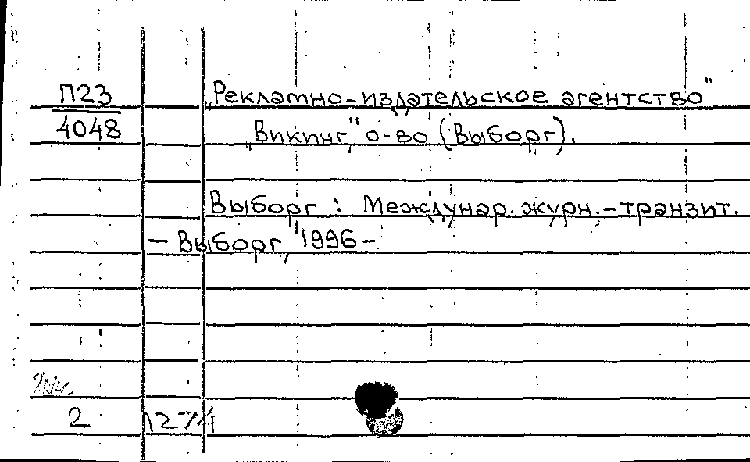 П23
4048
„Рекламно-издательское агентство"
„Викинг" о-во (Выборг).
Выборг : Междунар. журн.-транзит.
– Выборг, 1996 –
2